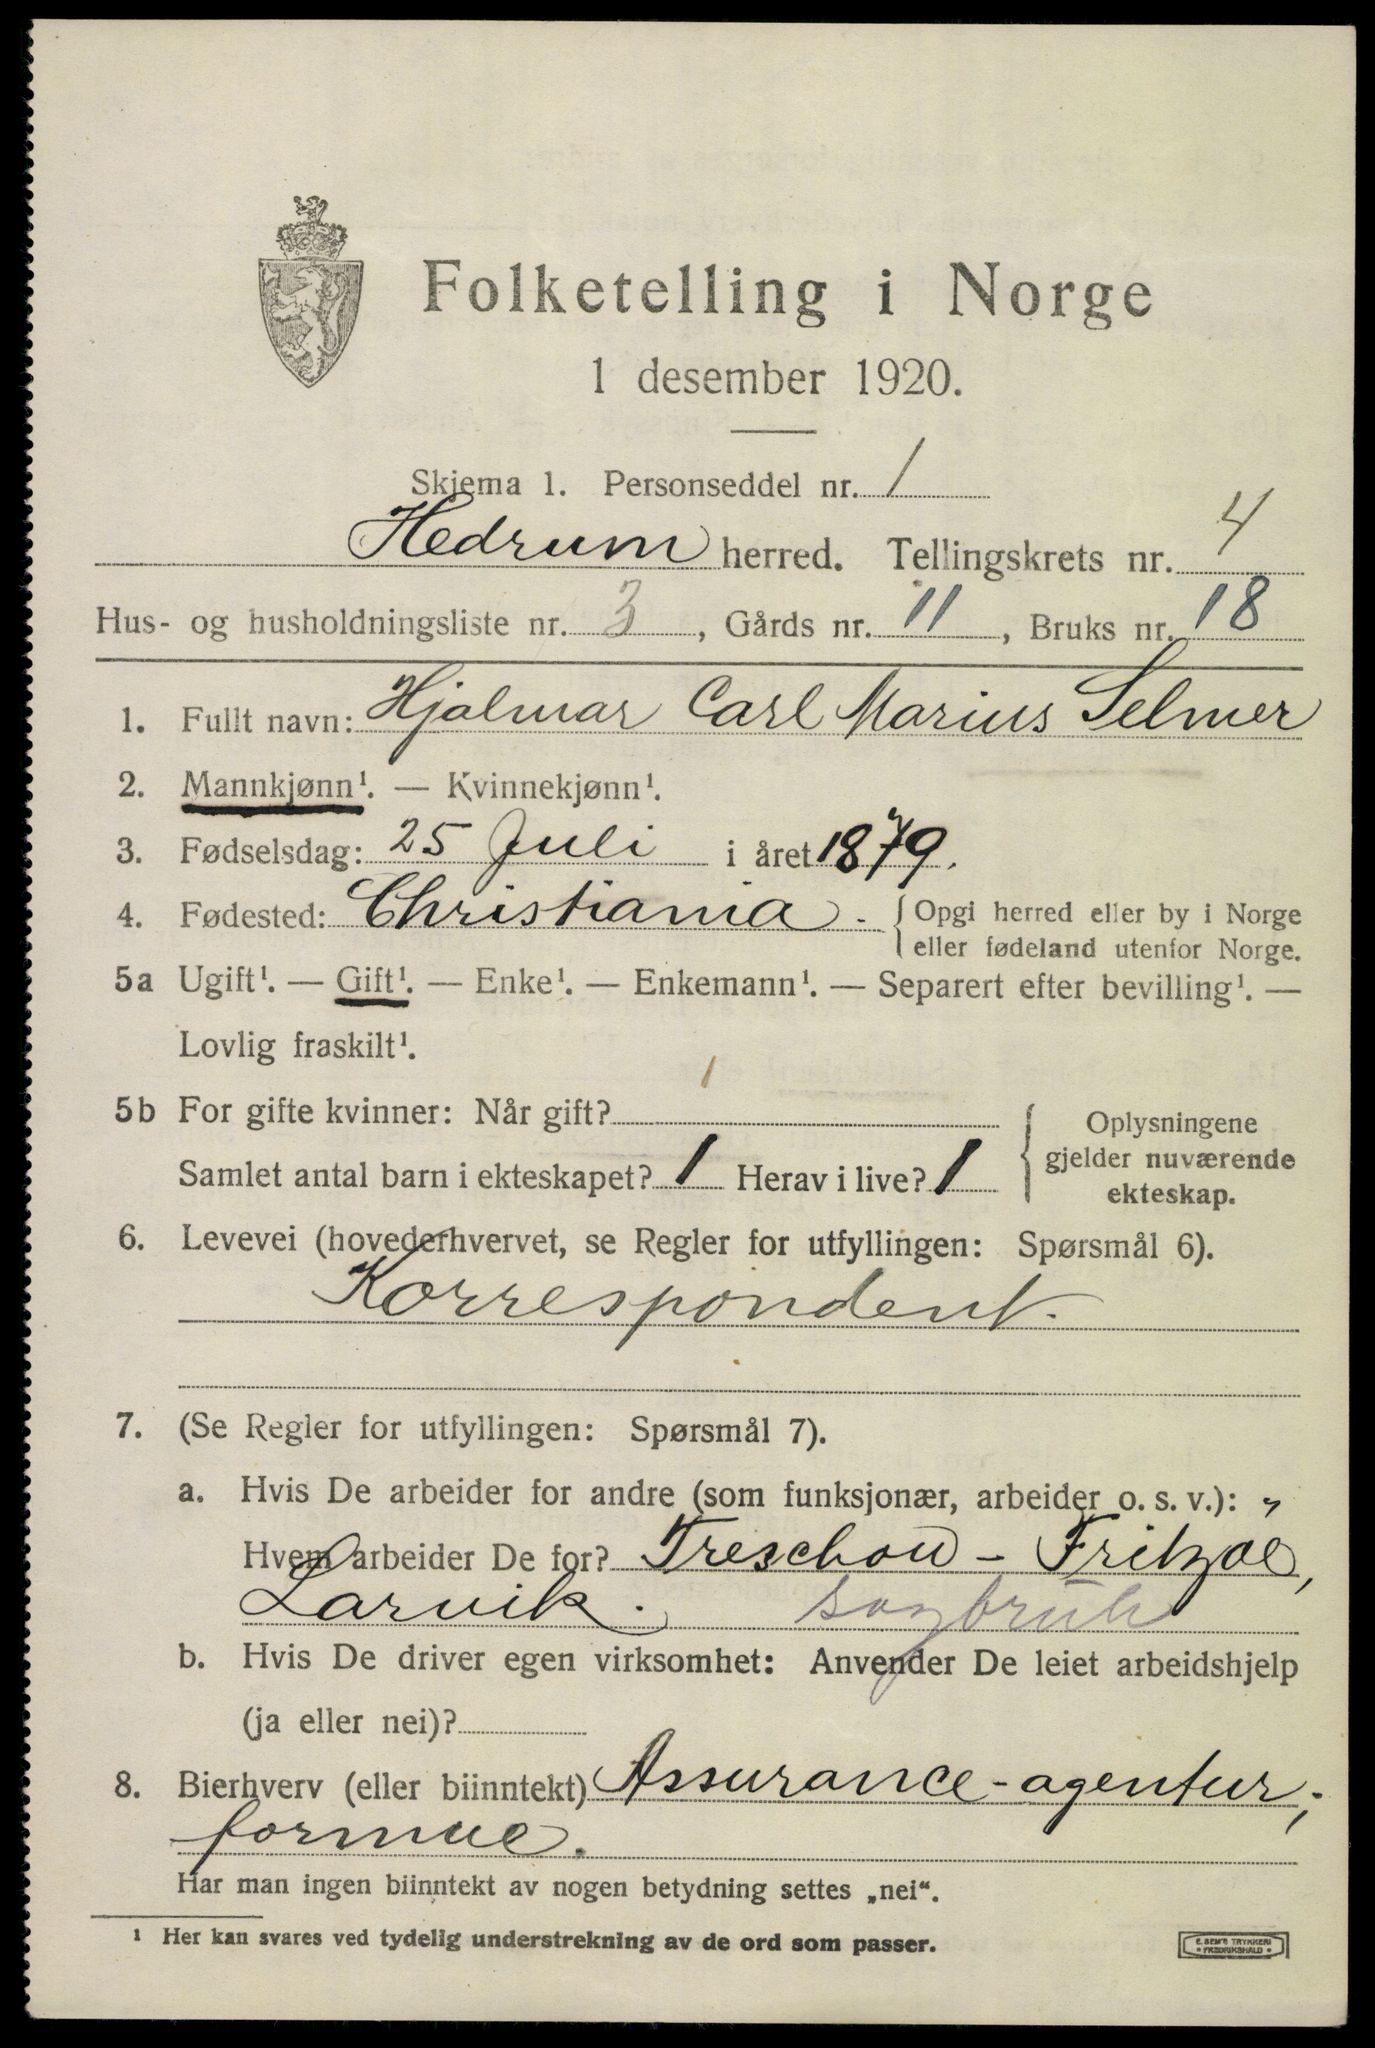 Folketelling i Norge
1 desember 1920.
Skjema 1. Personseddel nr. 1
Hedrum herred. Tellingskrets nr. 4
Hus- og husholdningsliste nr. 3, Gårds nr. 11, Bruks nr. 18
1. Fullt navn: Hjalmar Carl Marius Selmer
2. Mannkjønn¹. — Kvinnekjønn¹.
3. Fødselsdag: 25 Juli i året 1879.
4. Fødested: Christiania. { Opgi herred eller by i Norge
eller fødeland utenfor Norge.
5a Ugift¹. — Gift¹. — Enke¹. — Enkemann¹. — Separert efter bevilling¹. —
Lovlig fraskilt¹.
5b For gifte kvinner: Når gift? 1
Samlet antal barn i ekteskapet? 1 Herav i live? 1
{ Oplysningene
gjelder nuværende
ekteskap.
6. Levevei (hovederhvervet, se Regler for utfyllingen: Spørsmål 6).
Korrespondent.
7. (Se Regler for utfyllingen: Spørsmål 7).
a. Hvis De arbeider for andre (som funksjonær, arbeider o. s. v.):
Hvem arbeider De for? Treschow - Fritzöe,
Larvik. sagbruk
b. Hvis De driver egen virksomhet: Anvender De leiet arbeidshjelp
(ja eller nei)?
8. Bierhverv (eller biinntekt) Assurance-agentur;
formue.
Har man ingen biinntekt av nogen betydning settes „nei“.
¹ Her kan svares ved tydelig understrekning av de ord som passer.
E. SEM'S TRYKKERI
FREDRIKSHALD